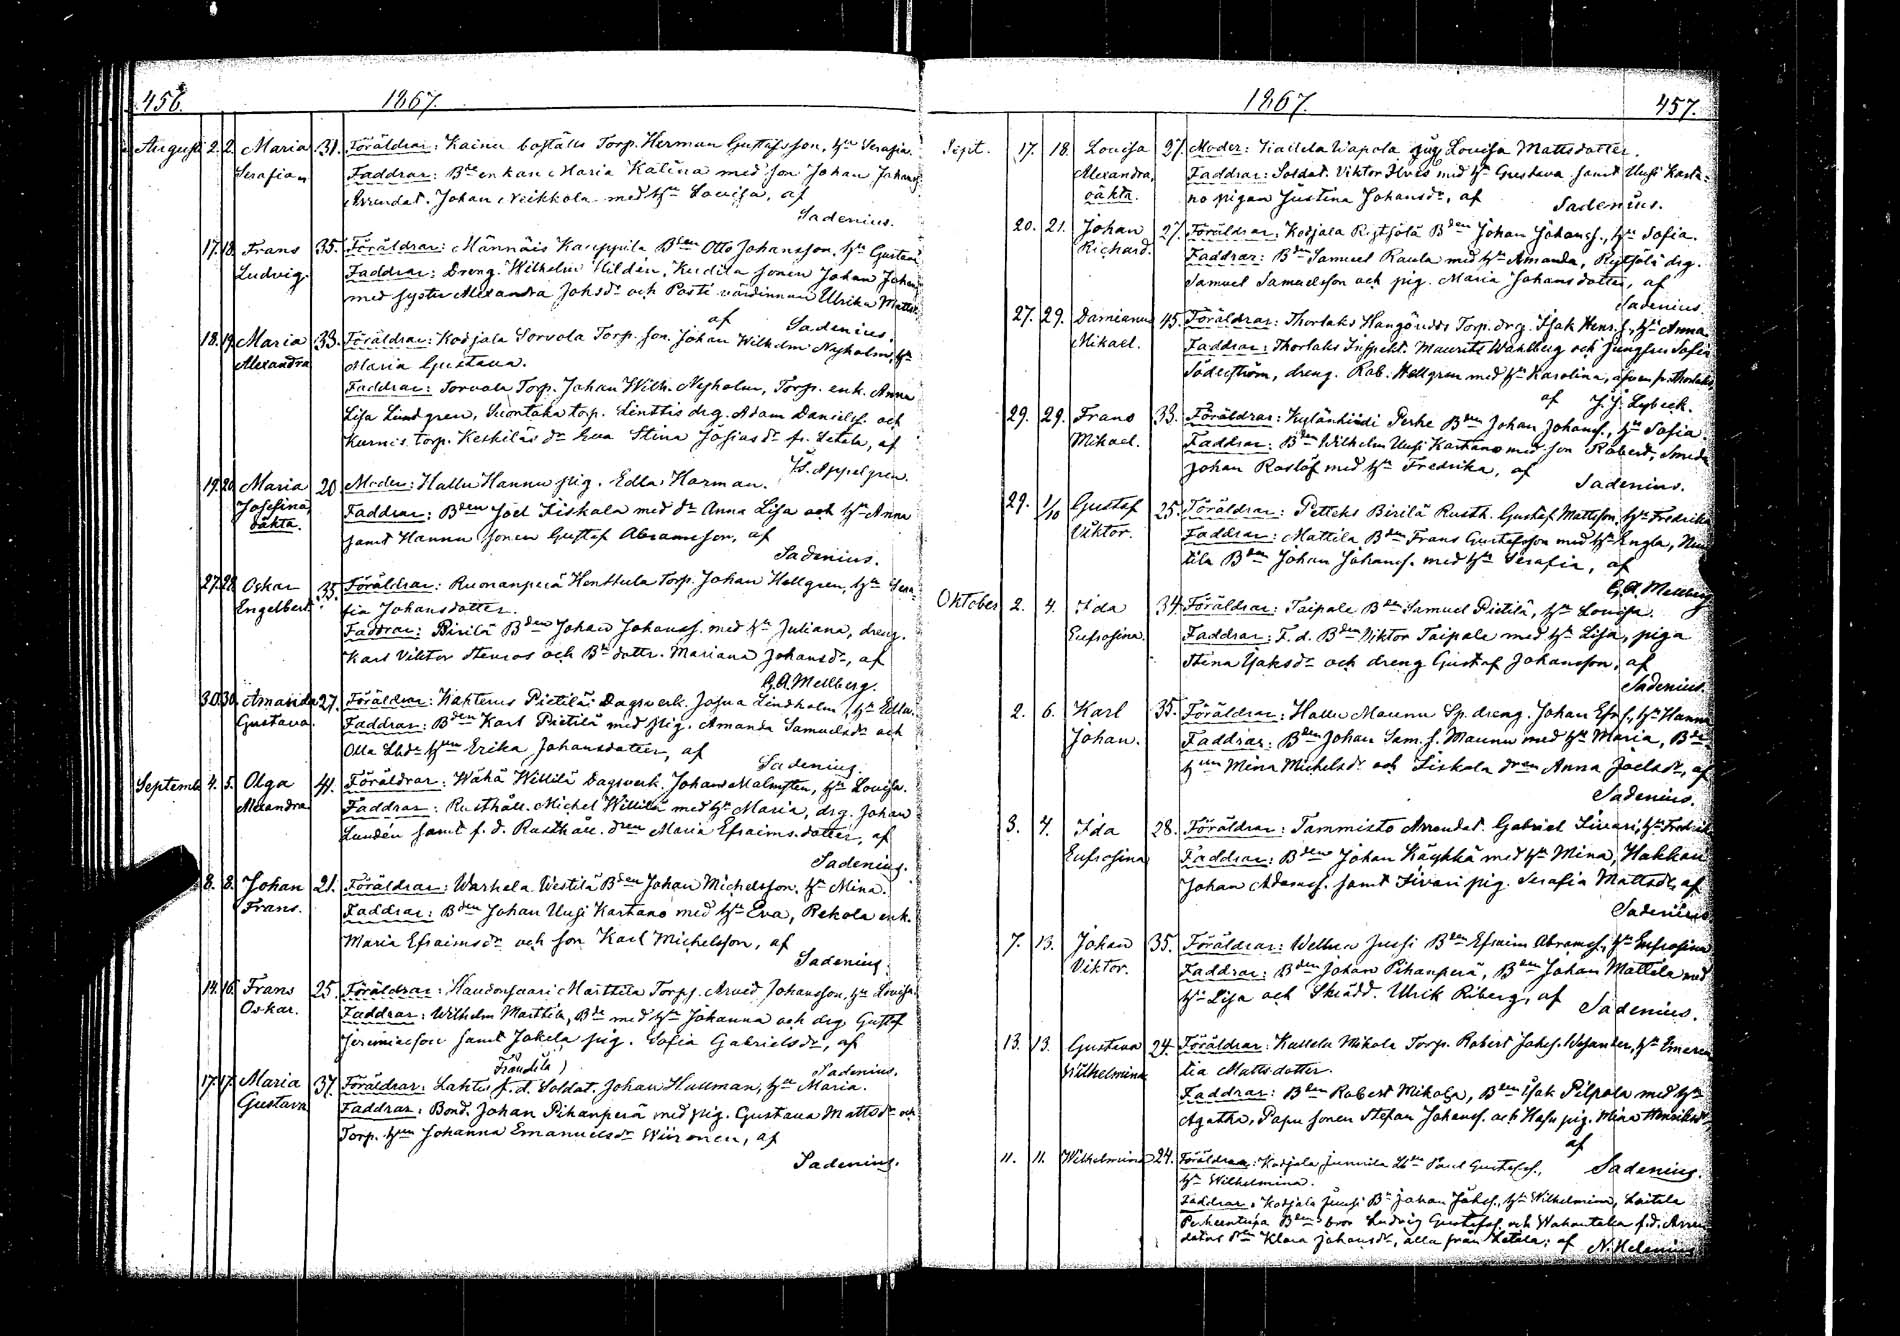 456.
1867.
Augusti 2. 2. Maria 31. Föräldrar: Kainu boställs Torp. Herman Gustafsson, hu Serafia.
Serafia Faddrar: Bde enkan Maria Katina med son Johan Johans
Arrendat. Johan Neikkola med hu Lovisa, af
Sadenius.
17. 18. Frans 35. Föräldrar: Männäis Kauppila Bden Otto Johansson, hu Gustava
Ludvig. Faddrar: Dreng. Wilhelm Hildén, sonen Johan Johans
med syster Alexandra Johsdr och Posti värdinnan Ulrika Matts
af Sadenius.
18. 19. Maria 33. Föräldrar: Kodjala Sorvola Torp. son. Johan Wilhelm Nyholm, hu
Alexandra Maria Gustava.
Faddrar: Sorvola Torp. Johan Wilh. Nyholm, Torp. enk. Anna
Lisa Lindgren, Suontaka torp. Linttis drg. Adam Danielss. och
torp. Keskiläs dr Eva Stina Josiasdr fr. Letala, af
Is. Appelgren.
19. 20. Maria 20. Moder: Hallu Hannu pig. Edla Harman.
Josefina, Faddrar: Bden Joel Liskala med dr Anna Lisa och hu Anna
oäkta. samt Hannu sonen Gustaf Abramsson, af
Sadenius.
27. 28. Oskar 35. Föräldrar: Ruonanperä Honttula Torp. Johan Hellgren, hu Sera
Engelbert. fia Johansdotter.
Faddrar: Birilä Bden Johan Johanss. med hu Juliana, dreng.
Karl Viktor Stenros och Bde dottr. Mariana Johansdr, af
G.A. Mellberg.
30. 30. Amanda 27. Föräldrar: Kahterus Pietilä Dagsverk. Josua Lindholm, hu Edla.
Gustava. Faddrar: Bden Karl Pietilä med pig. Amanda Samuelsdr och
Olla hun Erika Johansdotter, af
Sadenius.
September 4. 5. Olga 41. Föräldrar: Wähä Willilä Dagsverk. Johan Malmsten, hu Lovisa.
Alexandra Faddrar: Rusthåll. Michel Willilä med hu Maria, drg. Johan
Lundén samt f. d. Rusthåll. dren Maria Efraimsdotter, af
Sadenius.
8. 8. Johan 21. Föräldrar: Warhela Westilä Bden Johan Michelsson, hu Mina.
Frans. Faddrar: Bden Johan Uusi Kartano med hu Eva, Rekola enk.
Maria Efraimsdr och son Karl Michelsson, af
Sadenius.
14. 16. Frans 25. Föräldrar: Haudonsaari Marttila Torps. Arvid Johansson, hu Lovisa.
Oskar. Faddrar: Wilhelm Marttila, Bde med hu Johanna och drg. Gustaf
Jeremiasson samt Jakola pig. Sofia Gabrielsdr, af
Sadenius.
17. 17. Maria 37. Föräldrar: Lahtis f. d. Soldat. Johan Hallman, hu Maria.
Gustava Faddrar: Bond. Johan Pihanperä med pig. Gustava Mattsdr och
Torp. hun Johanna Emanuelsdr Wiironen, af
Sadenius.
1867.
457.
Sept. 17. 18. Lovisa 27. Moder: Kaitila Wapola pig Lovisa Mattsdotter.
Alexandra, Faddrar: Soldat. Viktor Ilves med hu Gustava samt Uusi Karta-
oäkta. no pigan Justina Johansdr, af Sadenius.
20. 21. Johan 27. Föräldrar: Kodjala Bden Johan Johanss., hu Sofia.
Richard. Faddrar: Bden Samuel Raula med hu Amanda, drg.
Samuel Samuelsson och pig. Maria Johansdotter, af
Sadenius.
27. 29. Damianus 45. Föräldrar: Thorlaks Hangöudds Torp. drg. Isak Hens.s., hu Anna
Mikael. Faddrar: Thorlaks Inspekt. Maurits Wahlberg och Jungfru Sofia
Söderström, dreng. Rob. Hellgren med hu Karolina, äfven fr. Thorlaks
af J. J. Lybeck.
29. 29. Frans 33. Föräldrar: Kylänhiidi Perhe Bden Johan Johanss., hu Sofia.
Mikael. Faddrar: Bden Wilhelm Uusi Kartano med son Robert, Smeden
Johan Roslöf med hu Fredrika, af
Sadenius.
29. 1/10 Gustaf 25. Föräldrar: Pettehs Birilä Rusth. Gustaf Mattsson, hu Fredrika
Viktor. Faddrar: Mattila Bden Frans Gustafsson med hu Engla,
tila Bden Johan Johanss. med hu Serafia, af
G.A. Mellberg
Oktober 2. 4. Ida 34. Föräldrar: Taipale Bden Samuel Pietilä, hu Lovisa.
Eufrosina. Faddrar: F. d. Bden Viktor Taipale med hu Lisa, piga
Stina Isaksdr och dreng Gustaf Johansson, af
Sadenius.
2. 6. Karl 35. Föräldrar: Hallu Maunu Sp. dreng. Johan Efrs., hu Hanna
Johan. Faddrar: Bden Johan Sam.s. Maunu med hu Maria, Bde
hun Mina Michelsdr och Liskola dren Anna Joelsdr, af
Sadenius.
3. 4. Ida 28. Föräldrar: Tammisto Arrendat. Gabriel Iivari, hu Fredrika
Eufrosina Faddrar: Bden Johan Käyhkä med hu Mina, Hakkari
Johan Adamss. samt Iivari pig. Serafia Mattsdr, af
Sadenius
7. 13. Johan 35. Föräldrar: Wellua Jussi Bden Efraim Abramss., hu Eufrosina
Viktor. Faddrar: Bden Johan Pihanperä, Bden Johan Mattila med
hu Lisa och Skrädd. Ulrik Riberg, af Sadenius.
13. 13. Gustava 24. Föräldrar: Kallela Mikola Torp. Robert Johss. Wesander, hu Emeren
Wilhelmina tia Mattsdotter.
Faddrar: Bden Robert Mikola, Bden Isak Pilpola med hu
Agatha, Papu sonen Stefan Johanss. och pig. Mina Henriksdr,
af
Sadenius.
11. 11. Wilhelmina 24. Föräldrar: Kodjala Junnila Lbde Paul Gustafss.,
hu Wilhelmina.
Faddrar: Kodjala Juusi Bde Johan Johss., hu Wilhelmina, Laitila
Perheentupa Bdens bror Ludvig Gustafss. och Wahantaka f. d. Arren
dators dr Klara Johansdr, alla från Letala; af N. Helenius